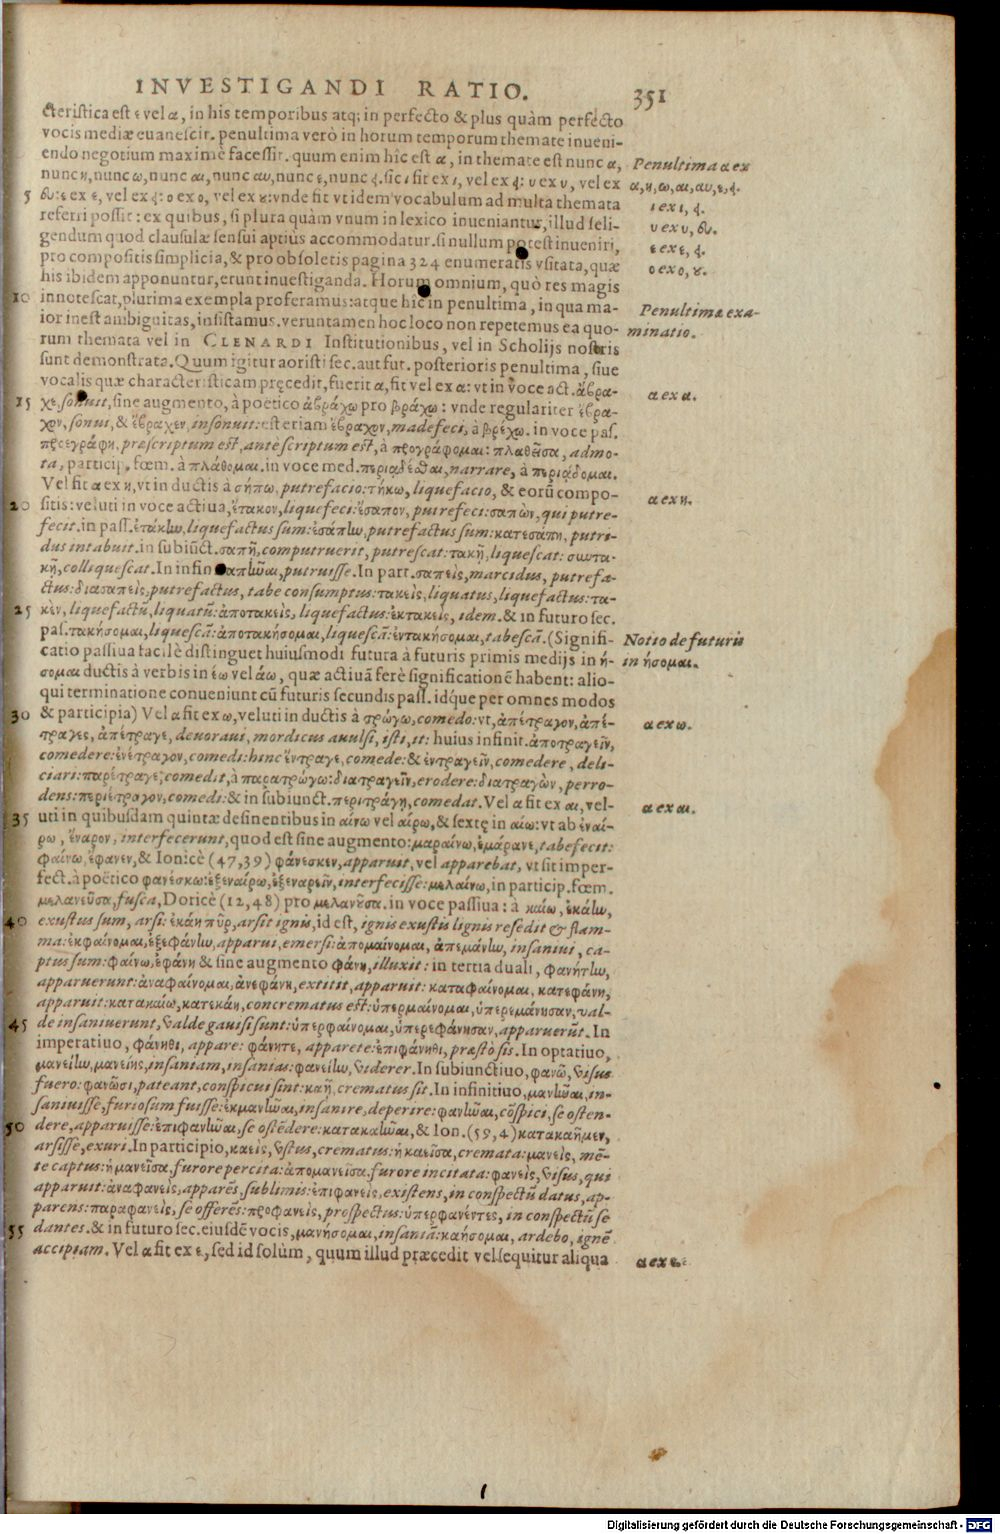 INVESTIGANDI RATIO.
351
cteristica est ε vel α, in his temporibus atq; in perfecto & plus quàm perfecto
vocis mediæ euanescit. penultima verò in horum temporum themate inueni-
endo negotium maximè facessit. quum enim hîc est α, in themate est nunc α,
Penultima α ex
nunc η, nunc ω, nunc αι, nunc αυ, nunc ε, nunc ει. sic ι fit ex ι, vel ex ει: υ ex υ, vel ex
α, η, ω, αι, αυ, ε, ει.
5 ευ: ε ex ε, vel ex ει: ο ex ο, vel ex ου: vnde fit vt idem vocabulum ad multa themata
ι ex ι, ει.
referri possit: ex quibus, si plura quàm vnum in lexico inueniantur, illud seli-
υ ex υ, ευ.
gendum quod clausulæ sensui aptius accommodatur. si nullum potest inueniri,
ε ex ε, ει.
pro compositis simplicia, & pro obsoletis pagina 324 enumeratis vsitata, quæ
ο ex ο, ου.
his ibidem apponuntur, erunt inuestiganda. Horum omnium, quò res magis
10 innotescat, plurima exempla proferamus: atque hîc in penultima, in qua ma-
Penultimæ exa-
ior inest ambiguitas, insistamus. veruntamen hoc loco non repetemus ea quo-
minatio.
rum themata vel in CLENARDI Institutionibus, vel in Scholijs nostris
sunt demonstrata. Quum igitur aoristi sec. aut fut. posterioris penultima, siue
vocalis quæ characteristicam pręcedit, fuerit α, fit vel ex α: vt in voce act. ἄβρα-
α ex α.
15 χε, sonuit, sine augmento, à poëtico ἀβράχω pro βράχω: vnde regulariter ἔβρα-
χον, sonui, & ἔβραχεν, insonuit: est etiam ἔβραχον, madefeci, à βρέχω. in voce pas.
προεγράφη, præscriptum est, antè scriptum est, à προγράφομαι: πλαθεῖσα, admo-
ta, particip. fœm. à πλάθομαι. in voce med. περιαδέσθαι, narrare, à περιάδομαι.
Vel fit α ex η, vt in ductis à σήπω, putrefacio: τήκω, liquefacio, & eorũ compo-
α ex η.
20 sitis: veluti in voce actiua, ἔτακον, liquefeci: ἔσαπον, putrefeci: σαπὼν, qui putre-
fecit. in pass. ἐτάκην, liquefactus sum: ἐσάπην, putrefactus sum: κατεσάπη, putri-
dus intabuit. in subiũct. σαπῇ, computruerit, putrescat: τακῇ, liquescat: συντα-
κῇ, colliquescat. In infin. σαπῆναι, putruisse. In part. σαπεὶς, marcidus, putrefa-
ctus: διασαπεὶς, putrefactus, tabe consumptus: τακεὶς, liquatus, liquefactus: τα-
25 κὲν, liquefactũ, liquatũ: ἀποτακεὶς, liquefactus: ἐκτακεὶς, idem. & in futuro sec.
pas. τακήσομαι, liquescã: ἀποτακήσομαι, liquescã: ἐντακήσομαι, tabescã. (Signifi-
Notio de futuris
catio passiua facilè distinguet huiusmodi futura à futuris primis medijs in ή-
in ήσομαι.
σομαι ductis à verbis in έω vel άω, quæ actiuã ferè significationẽ habent: alio-
qui terminatione conueniunt cũ futuris secundis pass. idq́ue per omnes modos
30 & participia) Vel α fit ex ω, veluti in ductis à τρώγω, comedo: vt, ἀπέτραγον, ἀπέ-
α ex ω.
τραγες, ἀπέτραγε, deuoraui, mordicus auulsi, isti, it: huius infinit. ἀποτραγεῖν,
comedere: ἐνέτραγον, comedi: hinc ἔντραγε, comede: & ἐντραγεῖν, comedere, deli-
ciari: παρέτραγε, comedit, à παρατρώγω: διατραγεῖν, erodere: διατραγὼν, perro-
dens: περιέτραγον, comedi: & in subiunct. περιτράγη, comedat. Vel α fit ex αι, vel-
α ex αι.
35 uti in quibusdam quintæ desinentibus in αίνω vel αίρω, & sextę in αίω: vt ab ἐναί-
ρω, ἔναρον, interfecerunt, quod est sine augmento: μαραίνω, ἐμάρανε, tabefecit:
φαίνω, ἔφανεν, & Ionicè (47,39) φάνεσκεν, apparuit, vel apparebat, vt sit imper-
fect. à poëtico φανέσκω: ἐξεναίρω, ἐξεναρεῖν, interfecisse: μελαίνω, in particip. fœm.
μελανεῦσα, fusca, Doricè (12,48) pro μελανοῦσα. in voce passiua: à καίω, ἐκάην,
40 exustus sum, arsi: ἐκάη πῦρ, arsit ignis, id est, ignis exustis lignis resedit & flam-
ma: ἐκφαίνομαι, ἐξεφάνην, apparui, emersi: ἀπομαίνομαι, ἀπεμάνην, insaniui, ca-
ptus sum: φαίνω, ἐφάνη & sine augmento φάνη, illuxit: in tertia duali, φανήτην,
apparuerunt: ἀναφαίνομαι, ἀνεφάνη, extitit, apparuit: καταφαίνομαι, κατεφάνη,
apparuit: κατακαίω, κατεκάη, concrematus est: ὑπερμαίνομαι, ὑπερεμάνησαν, val-
45 de insaniuerunt, valde gauisi sunt: ὑπερφαίνομαι, ὑπερεφάνησαν, apparuerũt. In
imperatiuo, φάνηθι, appare: φάνητε, apparete: ἐπιφάνηθι, præstò sis. In optatiuo,
μανείην, μανείης, insaniam, insanias: φανείην, viderer. In subiunctiuo, φανῶ, visus
fuero: φανῶσι, pateant, conspicui sint: καῇ, crematus sit. In infinitiuo, μανῆναι, in-
saniuisse, furiosum fuisse: ἐκμανῆναι, insanire, deperire: φανῆναι, cõspici, se osten-
50 dere, apparuisse: ἐπιφανῆναι, se ostẽdere: κατακαῆναι, & Ion. (59,4) κατακαῆμεν,
arsisse, exuri. In participio, καεὶς, vstus, crematus: ἡ καεῖσα, cremata: μανεὶς, mẽ-
te captus: ἡ μανεῖσα, furore percita: ἀπομανεῖσα, furore incitata: φανεὶς, visus, qui
apparuit: ἀναφανεὶς, apparẽs, sublimis: ἐπιφανεὶς, existens, in conspectũ datus, ap-
parens: παραφανεὶς, se offerẽs: προφανεὶς, prospectus: ὑπερφανέντες, in conspectũ se
55 dantes. & in futuro sec. eiusdẽ vocis, μανήσομαι, insaniã: καήσομαι, ardebo, ignẽ
accipiam. Vel α fit ex ε, sed id solùm, quum illud præcedit vel sequitur aliqua
α ex ε.
Digitalisierung gefördert durch die Deutsche Forschungsgemeinschaft - DFG